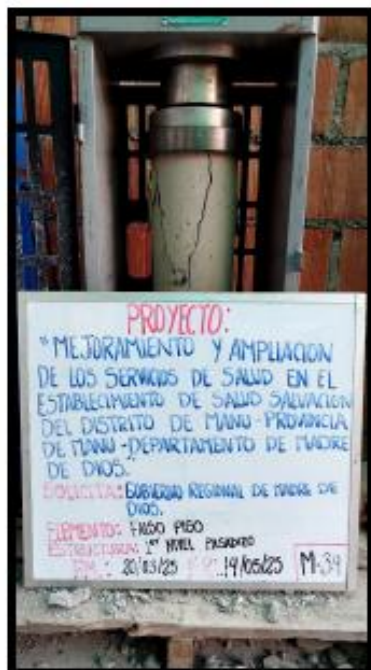 PROYECTO:
"MEJORAMIENTO Y AMPLIACION
DE LOS SERVICIOS DE SALUD EN EL
ESTABLECIMIENTO DE SALUD SALVACION
DEL DISTRITO DE MANU-PROVINCIA
DE MANU-DEPARTAMENTO DE MADRE
DE DIOS."
SOLICITA: GOBIERNO REGIONAL DE MADRE DE
DIOS.
ELEMENTO: FALSO PISO
ESTRUCTURA: 1er NIVEL PASADIZO
20/03/25 19/05/25 M-39